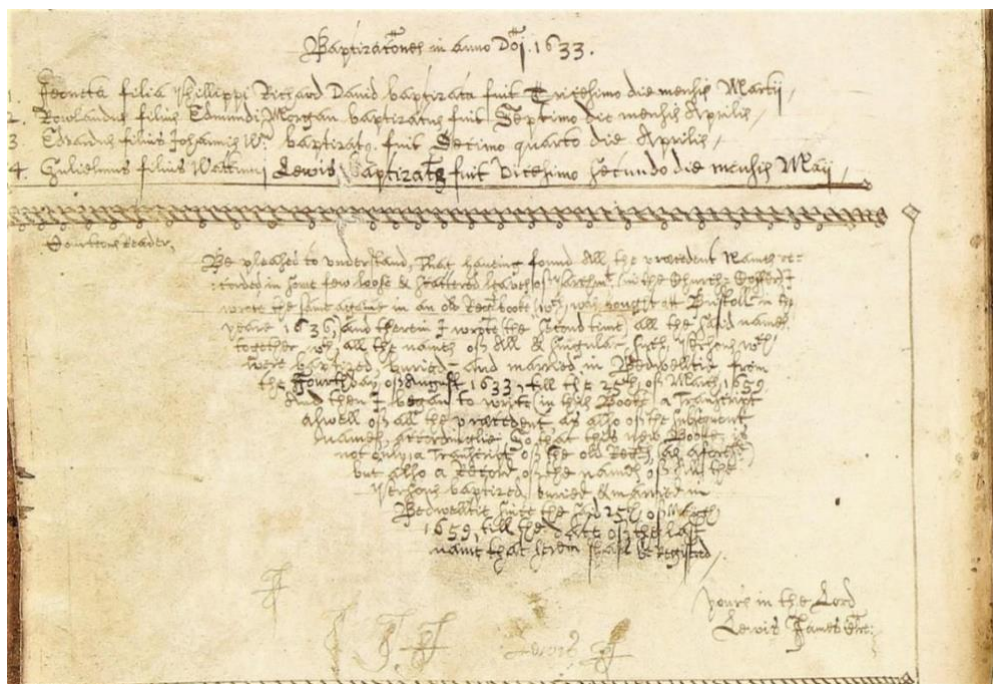 Baptizationes in anno Dōi. 1633.
1. Jennetta filia Phillippi Richard David baptizata fuit Tricesimo die mensis Martii,
2. Rowlandus filius Edmundi Morgan baptizatus fuit Septimo die mensis Aprilis,
3. Edvardus filius Johannis W: baptizatq fuit Decimo quarto die Aprilis,
4. Gulielmus filius Watkini Lewis baptizatq fuit Vicesimo secundo die mensis Maij,
Courteous Reader,
Be pleased to understand, That haveing found All the precedent Names re-
corded in some few loose & scattered leaves of Parchmt. (in the Church Coffer) I
wrote the same againe in an old Regr. booke, (wch was bought at Bristoll in the
yeare 1636) and therein I wrote (the second time) all the said names,
together wth all the names of All & Singular such persons wch
were baptized, buried and married in Bedwelltie from
the Fourth day of August 1633, till the 25th of March 1659
And then I began to write (in this Booke) a Transcript
aswell of all the precedent, as also of the subsequent
names, accordinglie, So that this new Booke, is
not only a Transcript of the old Regr. (as aforesd.)
but also a Record of the names of All the
persons baptized, buried & married in
Bedwelltie since the said 25th of March
1659, till the date of the last
name that herein shall be registred,
yours in the Lord
Lewis James
Lewis